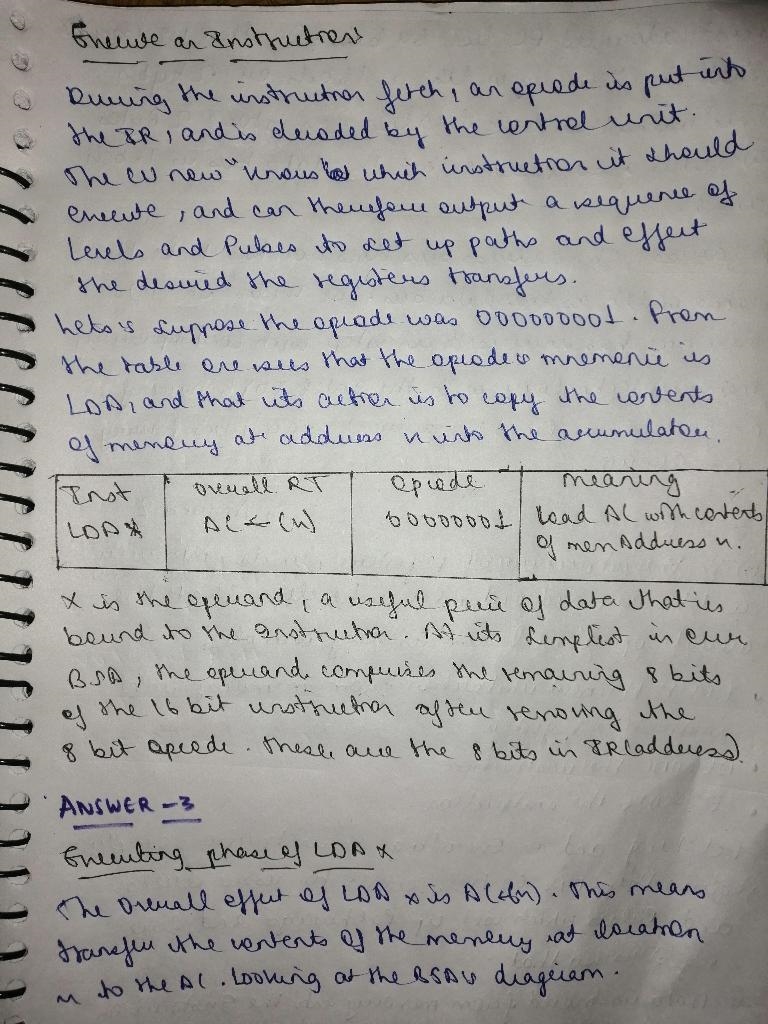 Execute an Instruction
During the instruction fetch, an opcode is put into
the IR, and is decoded by the control unit.
The CU now "knows" which instruction it should
execute, and can therefore output a sequence of
Levels and Pulses to set up paths and effect
the desired the registers transfers.
Lets's suppose the opcode was 000000001. From
the table one sees that the opcode's mnemonic is
LDA, and that its action is to copy the contents
of memory at address x into the accumulator.
Inst
LDA x
Overall RT
AC ← (x)
Opcode
00000001
meaning
Load AC with contents
of mem Address x.
X is the operand, a useful piece of data that is
bound to the instruction. At its simplest in our
BSA, the operand comprises the remaining 8 bits
of the 16 bit instruction after removing the
8 bit opcode. These are the 8 bits in IR(address).
ANSWER - 3
Executing phase of LDA x
The overall effect of LDA x is AC←(x). This means
transfer the contents of the memory at location
x to the AC. Looking at the BSA's diagram.